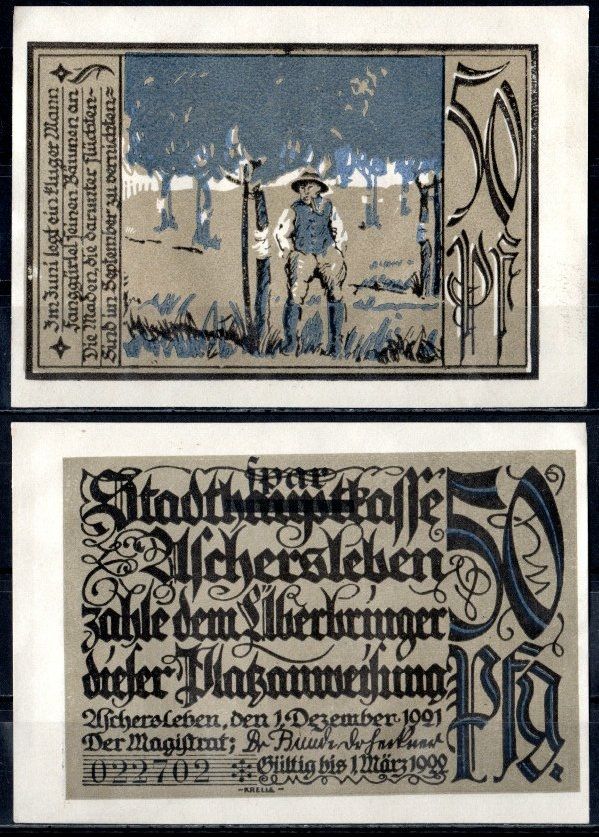 Im Juni legt ein kluger Mann
Fanggürtel seinen Bäumen an
Die Maden, die darunter flüchten-
Sind im September zu vernichten=
50
Pf
spar
Stadthauptkasse
Aschersleben
zahle dem Überbringer
dieser Platzanweisung
50
Pfg.
Aschersleben, den 1. Dezember 1921
Der Magistrat;
022702
Gültig bis 1 März 1922
-KRELLE-